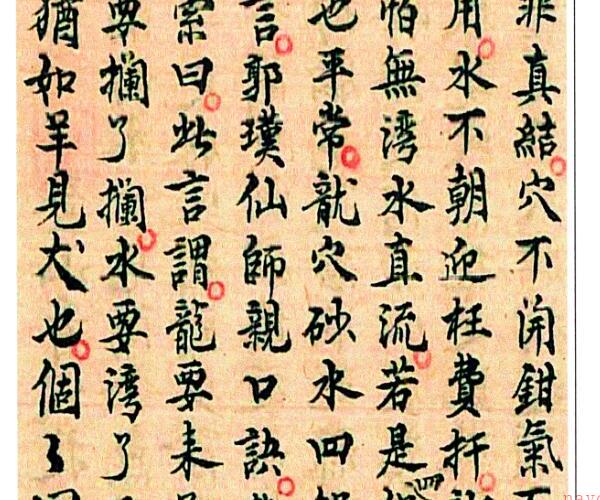 非真結穴不開鉗氣
用水不朝迎枉費扦
怕無湾水直流若是
也平常龍穴砂水四
言郭璞仙師親口訣
索曰此言謂龍要来
要攔了攔水要湾了
猶如羊見犬也個〻